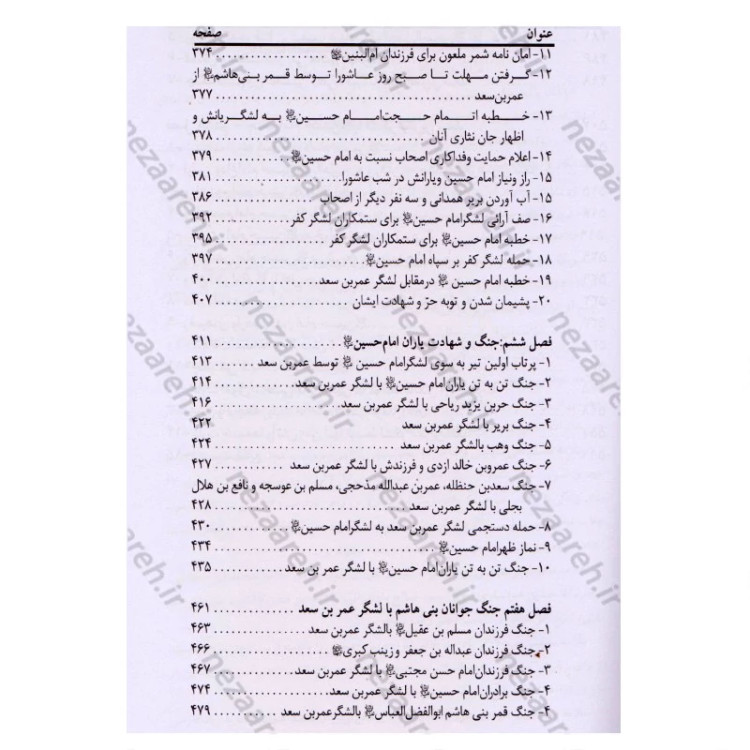 عنوان صفحه
۱۱- امان نامه شمر ملعون برای فرزندان ام‌البنین؏ ........ ۳۷۴
۱۲- گرفتن مهلت تا صبح روز عاشورا توسط قمر بنی‌هاشم؏ از
عمربن‌سعد ........ ۳۷۷
۱۳- خطبه اتمام حجت‌امام حسین؏ به لشگریانش و
اظهار جان نثاری آنان ........ ۳۷۸
۱۴- اعلام حمایت وفداکاری اصحاب نسبت به امام حسین؏ ........ ۳۷۹
۱۵- راز ونیاز امام حسین ویارانش در شب عاشورا ........ ۳۸۱
۱۵- آب آوردن بریر همدانی و سه نفر دیگر از اصحاب ........ ۳۸۶
۱۶- صف آرائی لشگرامام حسین؏ برای ستمکاران لشگر کفر ........ ۳۹۲
۱۷- خطبه امام حسین؏ برای ستمکاران لشگر کفر ........ ۳۹۵
۱۸- حمله لشگر کفر بر سپاه امام حسین؏ ........ ۳۹۷
۱۹- خطبه امام حسین ؏ درمقابل لشگر عمربن سعد ........ ۴۰۰
۲۰- پشیمان شدن و توبه حرّ و شهادت ایشان ........ ۴۰۷
فصل ششم:جنگ و شهادت یاران امام‌حسین؏ ........ ۴۱۱
۱- پرتاب اولین تیر به سوی لشگرامام حسین ؏ توسط عمربن سعد ........ ۴۱۳
۲- جنگ تن به تن یاران‌امام حسین؏ با لشگر عمربن سعد ........ ۴۱۴
۳- جنگ حربن یزید ریاحی با لشگر عمربن سعد ........ ۴۱۶
۴- جنگ بریر با لشگر عمربن سعد ........ ۴۲۲
۵- جنگ وهب بالشگر عمربن سعد ........ ۴۲۴
۶- جنگ عمروبن خالد ازدی و فرزندش با لشگر عمربن سعد ........ ۴۲۷
۷- جنگ سعدبن حنظله، عمربن عبدالله مذحجی، مسلم بن عوسجه و نافع بن هلال
بجلی با لشگر عمربن سعد ........ ۴۲۸
۸- حمله دستجمی لشگر عمربن سعد به لشگرامام حسین؏ ........ ۴۳۰
۹- نماز ظهرامام حسین؏ ........ ۴۳۴
۱۰- جنگ تن به تن یاران‌امام حسین؏ با لشگر عمر بن سعد ........ ۴۳۵
فصل هفتم جنگ جوانان بنی هاشم با لشگر عمر بن سعد ........ ۴۶۱
۱- جنگ فرزندان مسلم بن عقیل؏ بالشگر عمربن سعد ........ ۴۶۳
۲- جنگ فرزندان عبداله بن جعفر و زینب کبری؏ ........ ۴۶۶
۳- جنگ فرزندان‌امام حسن مجتبی؏ با لشگر عمربن سعد ........ ۴۶۷
۴- جنگ برادران‌امام حسین؏ با لشگر عمربن سعد ........ ۴۷۴
۴- جنگ قمر بنی هاشم ابوالفضل‌العباس؏ بالشگرعمربن سعد ........ ۴۷۹
nezaareh.ir